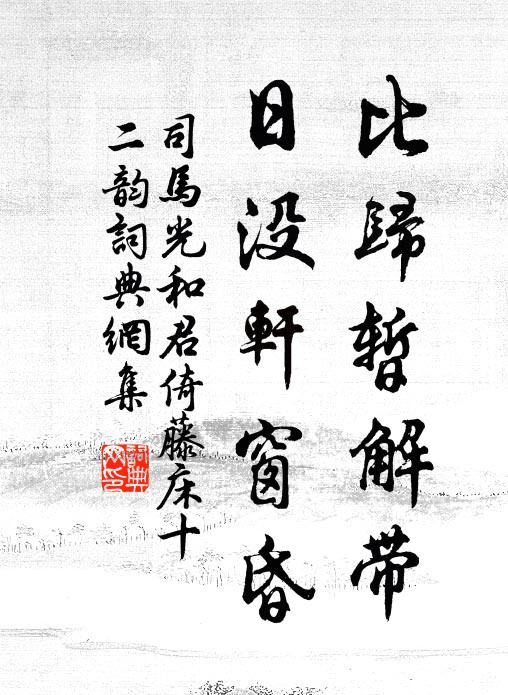 比歸暫解帶
日没軒窗昏
司馬光和君倚藤床十
二韵詞典網集
詞典
网印